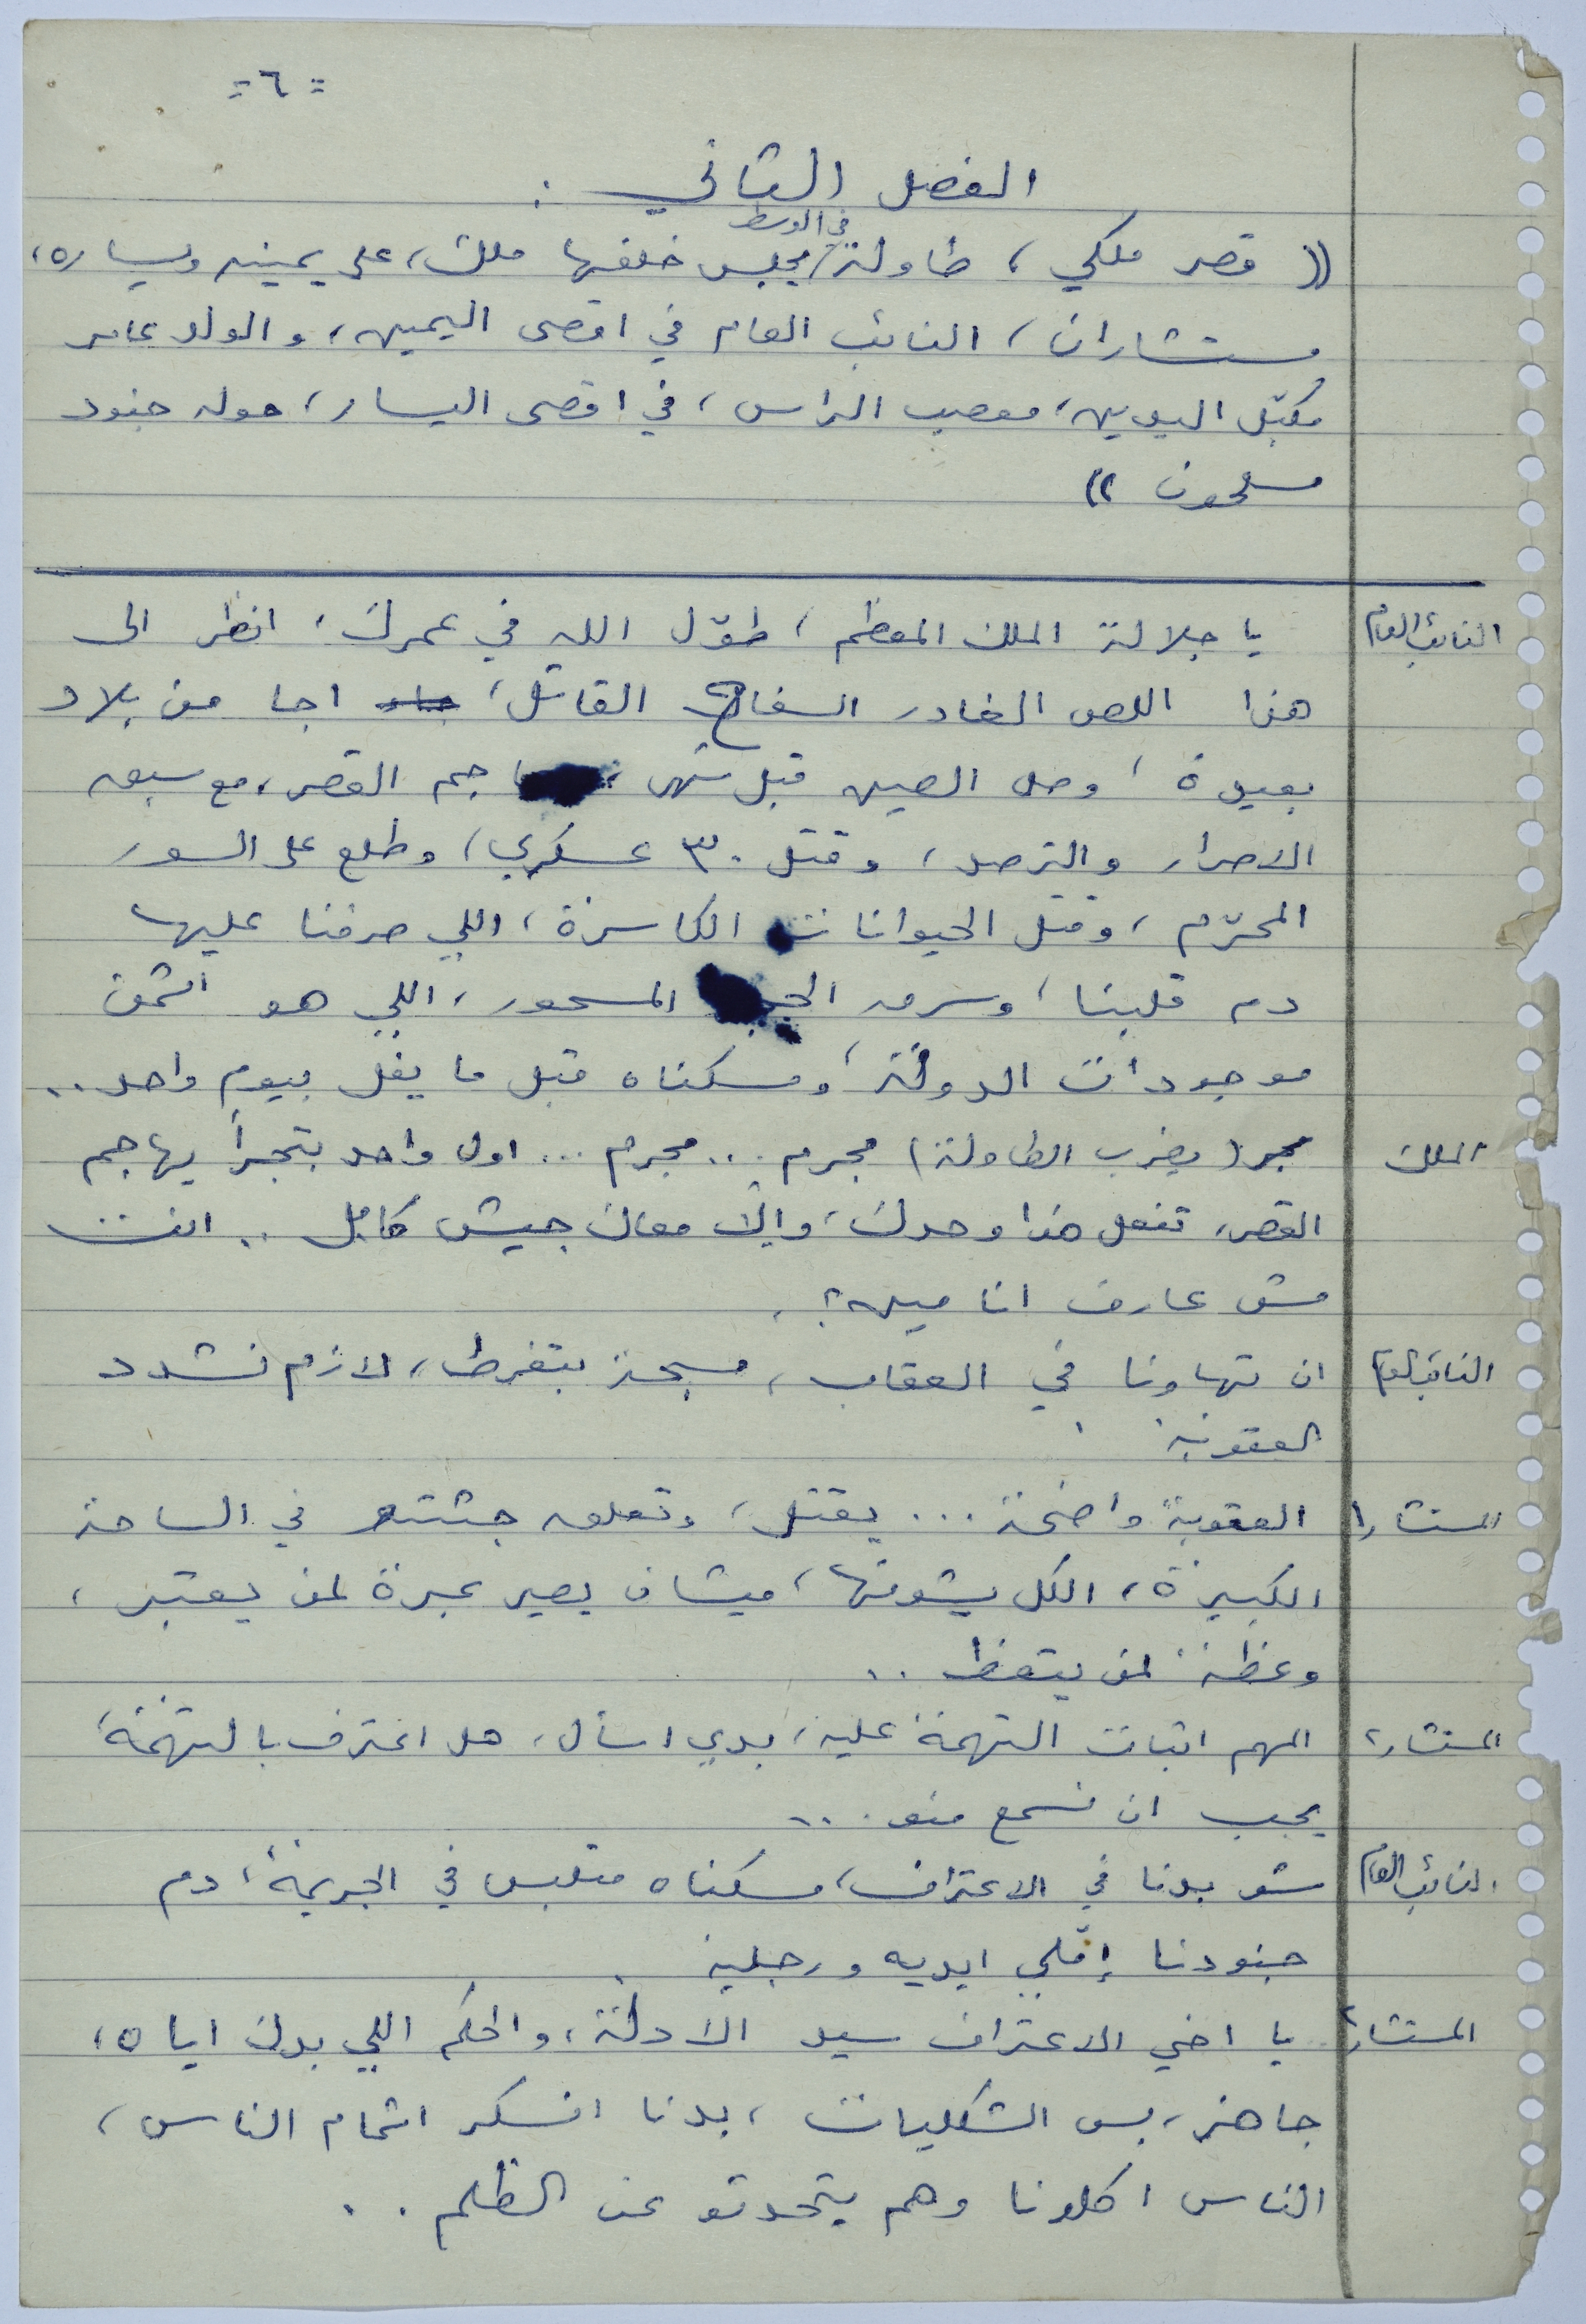 = ٦ =
الفصل الثاني :
(( قصر ملكي ، طاولة في الوسط / يجلس خلفها ملك ، على يمينه ويساره ،
مستشاران ، النائب العام في اقصى اليمين ، والولد عامر
مكبّل اليدين ، معصب الراس ، في اقصى اليسار ، حوله جنود
مسلحون ))
النائب العام يا جلالة الملك المعظم ، طوّل الله في عمرك ، انظر الى
هذا اللص الغادر السفاح القاتل ، اجا من بلاد
بعيدة ، وصل الصين قبل شهر ، جم القصر ، مع سبق
الاصرار والترصد ، وقتل ٣٠ عسكري ، وطلع على السور
المحرّم ، وقتل الحيوانات الكاسرة ، اللي صرفنا عليها
دم قلبنا ، وسرق المسحور ، اللي هو اثمن
موجودات الدولة ، ومسكناه قبل ما يفل بيوم واحد ..
الملك (يضرب الطاولة) مجرم ... مجرم ... اول واحد بتجرأ يهاجم
القصر ، تفعل هذا وحدك ، والّا معاك جيش كامل .. انت
مش عارف انا مين ؟ .
النائب العام ان تهاونا في العقاب ، مسبحة بتفرط ، لازم نشدد
العقوبة .
المستشار ١ العقوبة واضحة ... يقتل ، وتعلق جثته في الساحة
الكبيرة ، الكل يشوفها ، ميشان يصير عبرة لمن يعتبر ،
وعظة لمن يتعظ ..
المستشار ٢ المهم اثبات التهمة عليه ، بدي اسأل ، هل اعترف بالتهمة ،
يجب ان نسمع منو ...
النائب العام شو بدنا في الاعتراف ، مسكناه متلبس في الجريمة ، دم
جنودنا إمّلي ايديه ورجليه .
المستشار ٢ يا اخي الاعتراف سيد الادلّة ، والحكم اللي بدك اياه ،
جاهز ، بس الشكليات ، بدنا انسكر اثمام الناس ،
الناس اكلونا وهم يتحدثو عن الظلم ..